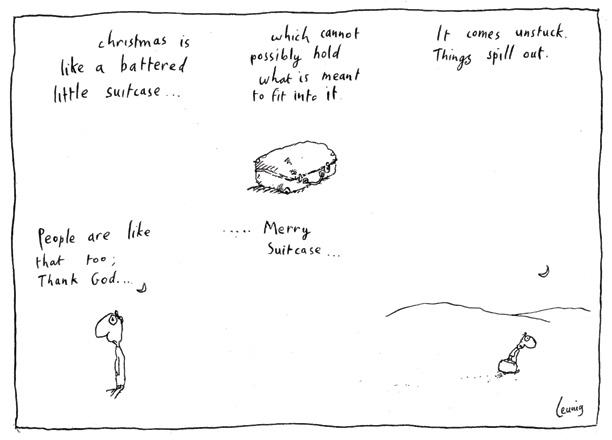 christmas is
like a battered
little suitcase...
which cannot
possibly hold
what is meant
to fit into it.
It comes unstuck.
Things spill out.
People are like
that too;
Thank God...
..... Merry
Suitcase...
Leunig